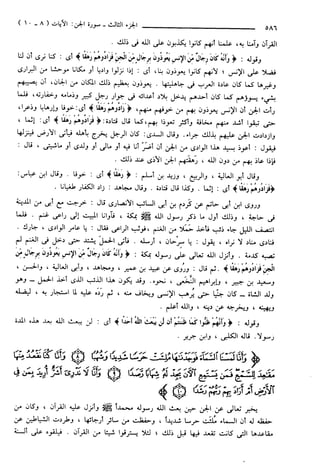 ٥٨٦
الجزء الثالث - سورة الجن: الآيات (٨ - ١٠)
القرآن وآمنا به، علمنا أنهم كانوا يكذبون على الله في ذلك .
وقوله : ﴿ وَأَنَّهُ كَانَ رِجَالٌ مِّنَ الْإِنسِ يَعُوذُونَ بِرِجَالٍ مِّنَ الْجِنِّ فَزَادُوهُمْ رَهَقًا ﴾ أي : كنا نرى أن لنا
فضلا على الإنس ؛ لأنهم كانوا يعوذون بنا، أي : إذا نزلوا واديا أو مكانا موحشا من البراري
وغيرها كما كان عادة العرب في جاهليتها . يعوذون بعظيم ذلك المكان من الجان، أن يصيبهم
بشيء يسوؤهم كما كان أحدهم يدخل بلاد أعدائه في جوار رجل كبير وذمامه وخفارته، فلما
رأت الجن أن الإنس يعوذون بهم من خوفهم منهم، ﴿ فَزَادُوهُمْ رَهَقًا ﴾ أي: خوفا وإرهابا وذعرا،
حتى تبقوا أشد منهم مخافة وأكثر تعوذا بهم، كما قال قتادة: ﴿ فَزَادُوهُمْ رَهَقًا ﴾ أي : إثما ،
وازدادت الجن عليهم بذلك جراءة. وقال السدي: كان الرجل يخرج بأهله فيأتي الأرض فينزلها
فيقول : أعوذ بسيد هذا الوادي من الجن أن أضر أنا فيه أو مالي أو ولدي أو ماشيتي ، قال :
فإذا عاذ بهم من دون الله ، رهقتهم الجن الأذى عند ذلك .
وقال أبو العالية ، والربيع ، وزيد بن أسلم : ﴿ رَهَقًا ﴾ أي : خوفا . وقال ابن عباس:
﴿ فَزَادُوهُمْ رَهَقًا ﴾ أي : إثما . وكذا قال قتادة . وقال مجاهد : زاد الكفار طغيانا .
وروى ابن أبي حاتم عن كردم بن أبي السائب الأنصاري قال : خرجت مع أبي من المدينة
في حاجة ، وذلك أول ما ذكر رسول الله ﷺ بمكة ، فآوانا المبيت إلى راعي غنم . فلما
انتصف الليل جاء ذئب فأخذ حملا من الغنم، فوثب الراعي فقال : يا عامر الوادي ، جارك .
فنادى مناد لا نراه ، يقول : يا سرحان ، أرسله . فأتى الحمل يشتد حتى دخل في الغنم لم
تصبه كدمة . وأنزل الله تعالى على رسوله بمكة : ﴿ وَأَنَّهُ كَانَ رِجَالٌ مِّنَ الْإِنسِ يَعُوذُونَ بِرِجَالٍ مِّنَ
الْجِنِّ فَزَادُوهُمْ رَهَقًا ﴾ . ثم قال : وروى عن عبيد بن عمير ، ومجاهد ، وأبي العالية ، والحسن ،
وسعيد بن جبير ، وإبراهيم النخعي ، نحوه. وقد يكون هذا الذئب الذي أخذ الحمل - وهو
ولد الشاة - كان جنيا حتى يرهب الإنسي ويخاف منه ، ثم رده عليه لما استجار به ، ليضله
ويهينه ، ويخرجه عن دينه ، والله أعلم .
وقوله : ﴿ وَأَنَّهُمْ ظَنُّوا كَمَا ظَنَنتُمْ أَن لَّن يَبْعَثَ اللَّهُ أَحَدًا ﴾ أي : لن يبعث الله بعد هذه المدة
رسولا. قاله الكلبي ، وابن جرير .
يخبر تعالى عن الجن حين بعث الله رسوله محمداً ﷺ وأنزل عليه القرآن ، وكان من
حفظه له أن السماء ملئت حرسا شديدا ، وحفظت من سائر أرجائها ، وطردت الشياطين عن
مقاعدها التي كانت تقعد فيها قبل ذلك ؛ لئلا يسترقوا شيئا من القرآن . فيلقوه على ألسنة